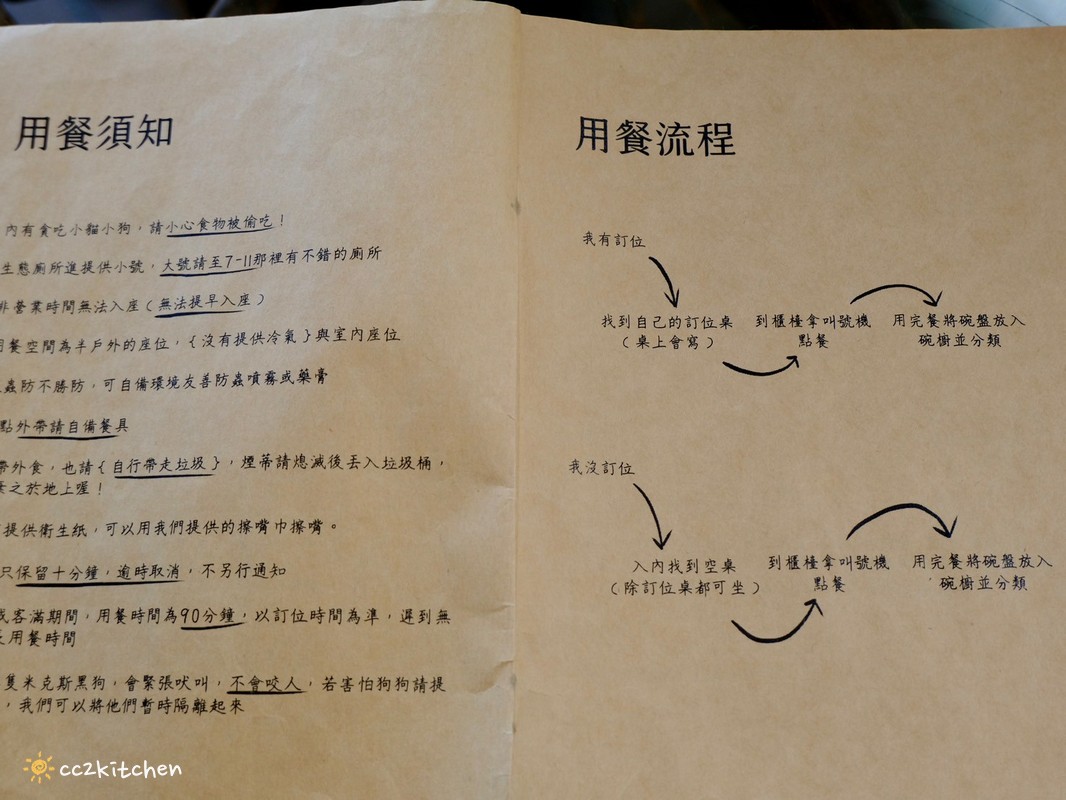 用餐須知
內有貪吃小貓小狗，請小心食物被偷吃！
生態廁所進提供小號，大號請至7-11那裡有不錯的廁所
非營業時間無法入座（無法提早入座）
用餐空間為半戶外的座位，{沒有提供冷氣}與室內座位
蟲防不勝防，可自備環境友善防蟲噴霧或藥膏
點外帶請自備餐具
帶外食，也請{自行帶走垃圾}，煙蒂請熄滅後丟入垃圾桶，
棄之於地上喔！
提供衛生紙，可以用我們提供的擦嘴巾擦嘴。
只保留十分鐘，逾時取消，不另行通知
或客滿期間，用餐時間為90分鐘，以訂位時間為準，遲到無
長用餐時間
隻米克斯黑狗，會緊張吠叫，不會咬人，若害怕狗狗請提
，我們可以將他們暫時隔離起來
用餐流程
我有訂位
找到自己的訂位桌
（桌上會寫）
到櫃檯拿叫號機
點餐
用完餐將碗盤放入
碗櫥並分類
我沒訂位
入內找到空桌
（除訂位桌都可坐）
到櫃檯拿叫號機
點餐
用完餐將碗盤放入
碗櫥並分類
cc2kitchen